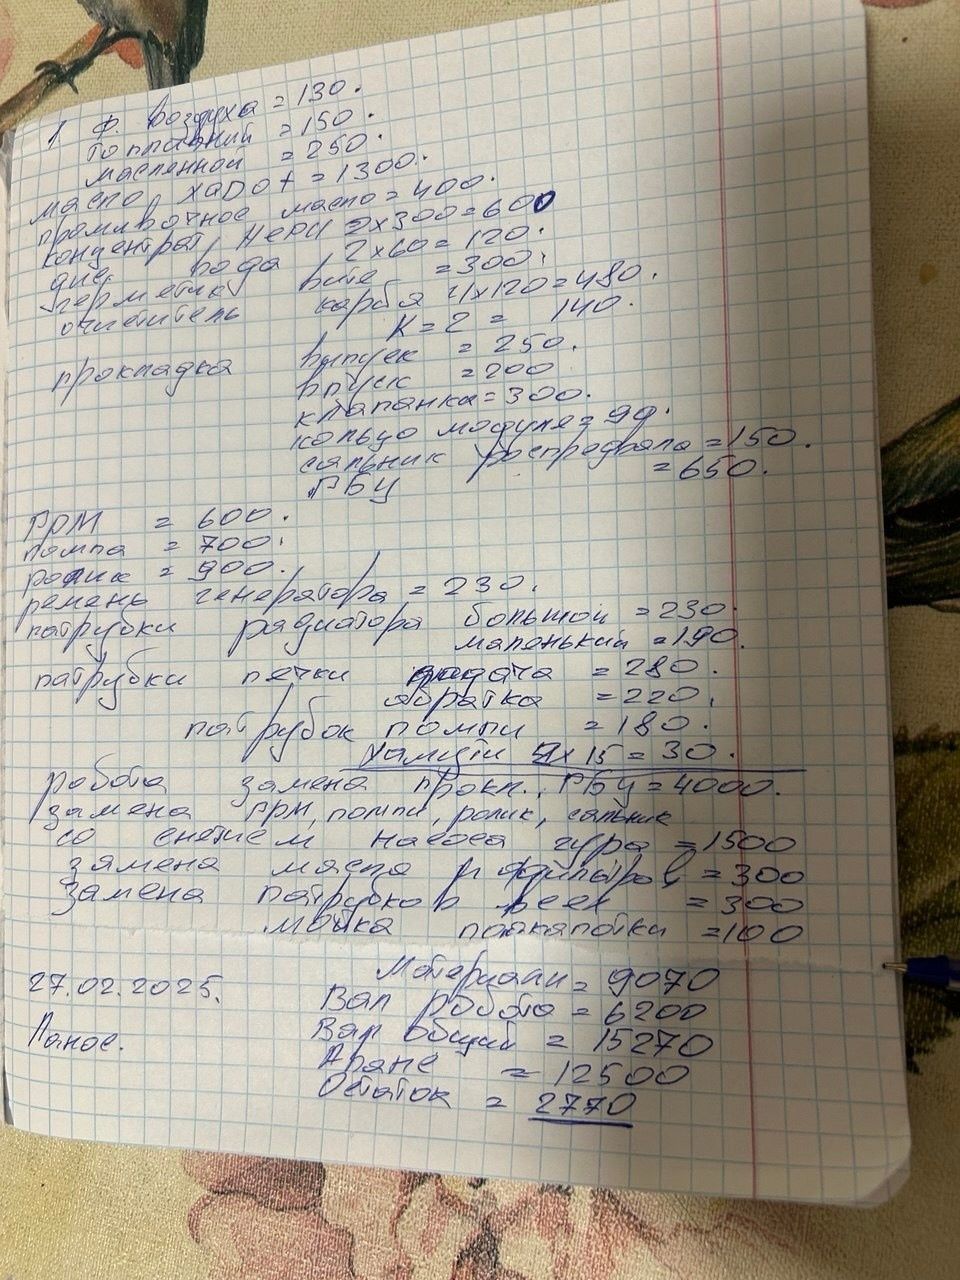 1. Ф. воздуха = 130.
топлавний = 150.
масленной = 250.
масло, хаDо + = 1300.
промивочное масло = 400.
концентрат, 2х300=600
дис вода 2х60 = 120.
герметик = 300.
очиститель карба 4х120=480.
К=2 = 140.
прокладка випуск = 250.
впуск = 200
клапанка = 300.
кольцо модуля = 90.
сальник роспродвала = 150.
ГБЦ = 650.
ГРМ = 600.
помпа = 700.
ролик = 900.
ремень генератора = 230.
патрубки радиатора большой = 230.
маленький = 190.
патрубки печки подача = 280.
обратка = 220.
патрубок помпи = 180.
хамути х 15 = 30.
робота замена прокл. ГБЦ = 4000.
замена ГРМ, помпи, ролик, сальник
со снетием насоса гура = 1500
замена масла и филтров = 300
замена патрубков всех = 300
мойка подкапотки = 100
Материали = 9070
27.02.2025. Вал робота = 6200
Ланос. Вал общий = 15270
= 12500
Остаток = 2770